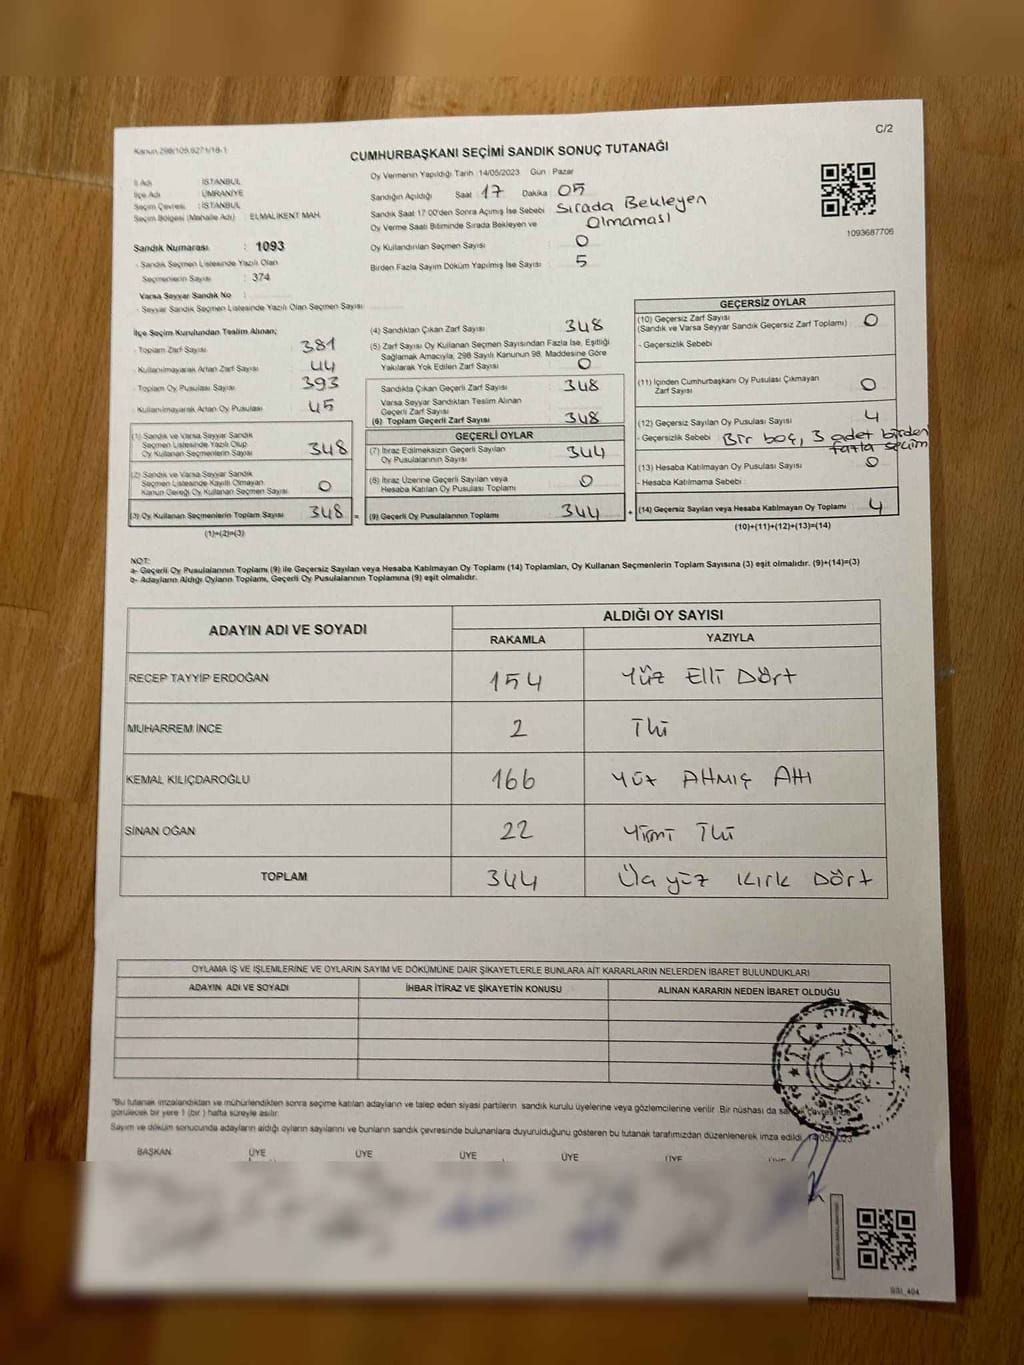 C/2
Kanun.298/105,6271/18-1
CUMHURBAŞKANI SEÇİMİ SANDIK SONUÇ TUTANAĞI
İl Adı : İSTANBUL
İlçe Adı : ÜMRANİYE
Seçim Çevresi : İSTANBUL
Seçim Bölgesi (Mahalle Adı) : ELMALIKENT MAH.
Sandık Numarası : 1093
- Sandık Seçmen Listesinde Yazılı Olan
Seçmenlerin Sayısı : 374
Varsa Seyyar Sandık No :
- Seyyar Sandık Seçmen Listesinde Yazılı Olan Seçmen Sayısı:
Oy Vermenin Yapıldığı Tarih 14/05/2023 Gün : Pazar
Sandığın Açıldığı Saat 17 Dakika 05
Sandık Saat 17:00'den Sonra Açılmış İse Sebebi Sırada Bekleyen
Oy Verme Saati Bitiminde Sırada Bekleyen ve Olmaması
Oy Kullandırılan Seçmen Sayısı 0
Birden Fazla Sayım Döküm Yapılmış İse Sayısı 5
1093687706
İlçe Seçim Kurulundan Teslim Alınan;
- Toplam Zarf Sayısı 381
- Kullanılmayarak Artan Zarf Sayısı 44
- Toplam Oy Pusulası Sayısı 393
- Kullanılmayarak Artan Oy Pusulası 45
(1) Sandık ve Varsa Seyyar Sandık
Seçmen Listesinde Yazılı Olup
Oy Kullanan Seçmenlerin Sayısı 348
(2) Sandık ve Varsa Seyyar Sandık
Seçmen Listesinde Kayıtlı Olmayan
Kanun Gereği Oy Kullanan Seçmen Sayısı 0
(3) Oy Kullanan Seçmenlerin Toplam Sayısı 348 =
(1)+(2)=(3)
(4) Sandıktan Çıkan Zarf Sayısı 348
(5) Zarf Sayısı Oy Kullanan Seçmen Sayısından Fazla İse, Eşitliği
Sağlamak Amacıyla, 298 Sayılı Kanunun 98. Maddesine Göre
Yakılarak Yok Edilen Zarf Sayısı 0
Sandıkta Çıkan Geçerli Zarf Sayısı 348
Varsa Seyyar Sandıktan Teslim Alınan
Geçerli Zarf Sayısı
(6) Toplam Geçerli Zarf Sayısı 348
GEÇERLİ OYLAR
(7) İtiraz Edilmeksizin Geçerli Sayılan
Oy Pusulalarının Sayısı 344
(8) İtiraz Üzerine Geçerli Sayılan veya
Hesaba Katılan Oy Pusulası Toplamı 0
(9) Geçerli Oy Pusulalarının Toplamı 344 +
GEÇERSİZ OYLAR
(10) Geçersiz Zarf Sayısı
(Sandık ve Varsa Seyyar Sandık Geçersiz Zarf Toplamı) 0
- Geçersizlik Sebebi
(11) İçinden Cumhurbaşkanı Oy Pusulası Çıkmayan
Zarf Sayısı 0
(12) Geçersiz Sayılan Oy Pusulası Sayısı 4
- Geçersizlik Sebebi Bir boş, 3 adet birden
fazla seçim
(13) Hesaba Katılmayan Oy Pusulası Sayısı 0
- Hesaba Katılmama Sebebi
(14) Geçersiz Sayılan veya Hesaba Katılmayan Oy Toplamı 4
(10)+(11)+(12)+(13)=(14)
NOT:
a- Geçerli Oy Pusulasının Toplamı (9) ile Geçersiz Sayılan veya Hesaba Katılmayan Oy Toplamı (14) Toplamları, Oy Kullanan Seçmenlerin Toplam Sayısına (3) eşit olmalıdır. (9)+(14)=(3)
b- Adayların Aldığı Oyların Toplamı, Geçerli Oy Pusulalarının Toplamına (9) eşit olmalıdır.
ADAYIN ADI VE SOYADI ALDIĞI OY SAYISI
RAKAMLA YAZIYLA
RECEP TAYYİP ERDOĞAN 154 Yüz Elli Dört
MUHARREM İNCE 2 İki
KEMAL KILIÇDAROĞLU 166 Yüz Altmış Altı
SİNAN OĞAN 22 Yirmi İki
TOPLAM 344 Üç yüz Kırk Dört
OYLAMA İŞ VE İŞLEMLERİNE VE OYLARIN SAYIM VE DÖKÜMÜNE DAİR ŞİKAYETLERLE BUNLARA AİT KARARLARIN NELERDEN İBARET BULUNDUKLARI
ADAYIN ADI VE SOYADI İHBAR İTİRAZ VE ŞİKAYETİN KONUSU ALINAN KARARIN NEDEN İBARET OLDUĞU
T.C.
"Bu tutanak imzalandıktan ve mühürlendikten sonra seçime katılan adayların ve talep eden siyasi partilerin sandık kurulu üyelerine veya gözlemcilerine verilir. Bir nüshası da sandık çevresinde
görülecek bir yere 1 (bir) hafta süreyle asılır.
Sayım ve döküm sonucunda adayların aldığı oyların sayılarını ve bunların sandık çevresinde bulunanlara duyurulduğunu gösteren bu tutanak tarafımızdan düzenlenerek imza edildi. 14/05/2023
BAŞKAN ÜYE ÜYE ÜYE ÜYE ÜYE